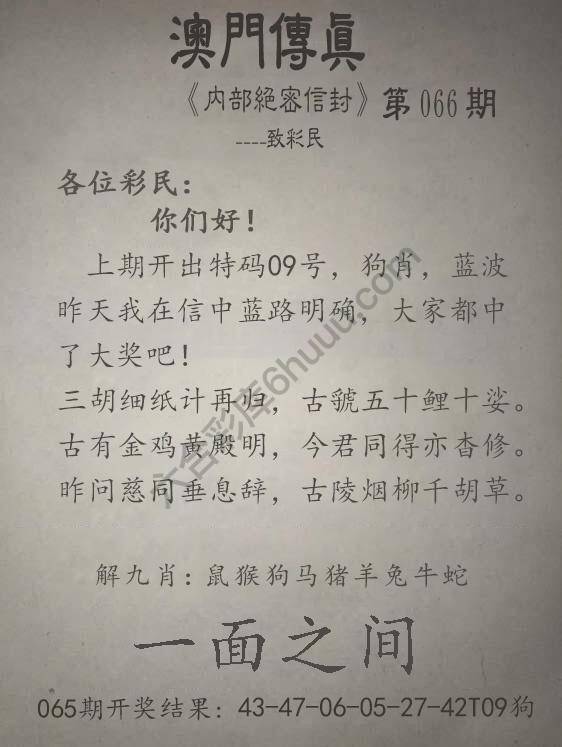 澳門傳眞
《内部絕密信封》第066期
----致彩民
各位彩民：
你们好！
上期开出特码09号，狗肖，蓝波
昨天我在信中蓝路明确，大家都中
了大奖吧！
三胡细纸计再归，古號五十鲤十娑。
古有金鸡黄殿明，今君同得亦杳修。
昨问慈同垂息辞，古陵烟柳千胡草。
解九肖：鼠猴狗马猪羊兔牛蛇
一面之间
065期开奖结果：43-47-06-05-27-42T09狗
六合彩库6huuu.com